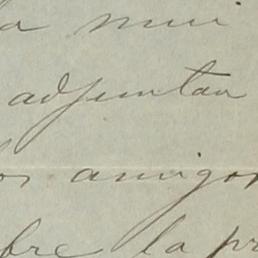 a mui
adjuntau
os amigos
bre la pr